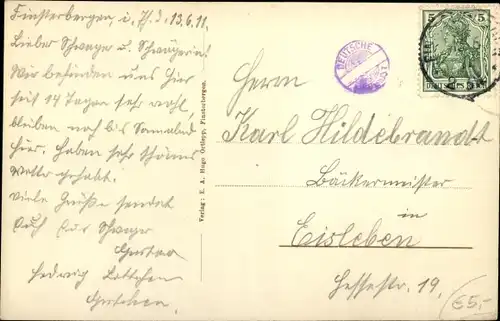 Finsterbergen, i. Th. d. 13.6.11.
Lieber Schwager u. Schwägerin!
Wir befinden uns hier
seit 14 Tagen sehr wohl,
bleiben noch bis Sonnabend
hier. Haben sehr schönes
Wetter gehabt.
Viele Grüße sendet
Euch Eur Schwager
Gustav
Hedwig Lottchen
Gretchen.
Verlag: E. A. Hugo Ortlepp, Finsterbergen.
DEUTSCHE
5 5
Herrn
Karl Hildebrandt
Bäckermeister
in
Eisleben
Hessestr. 19.
€5,-